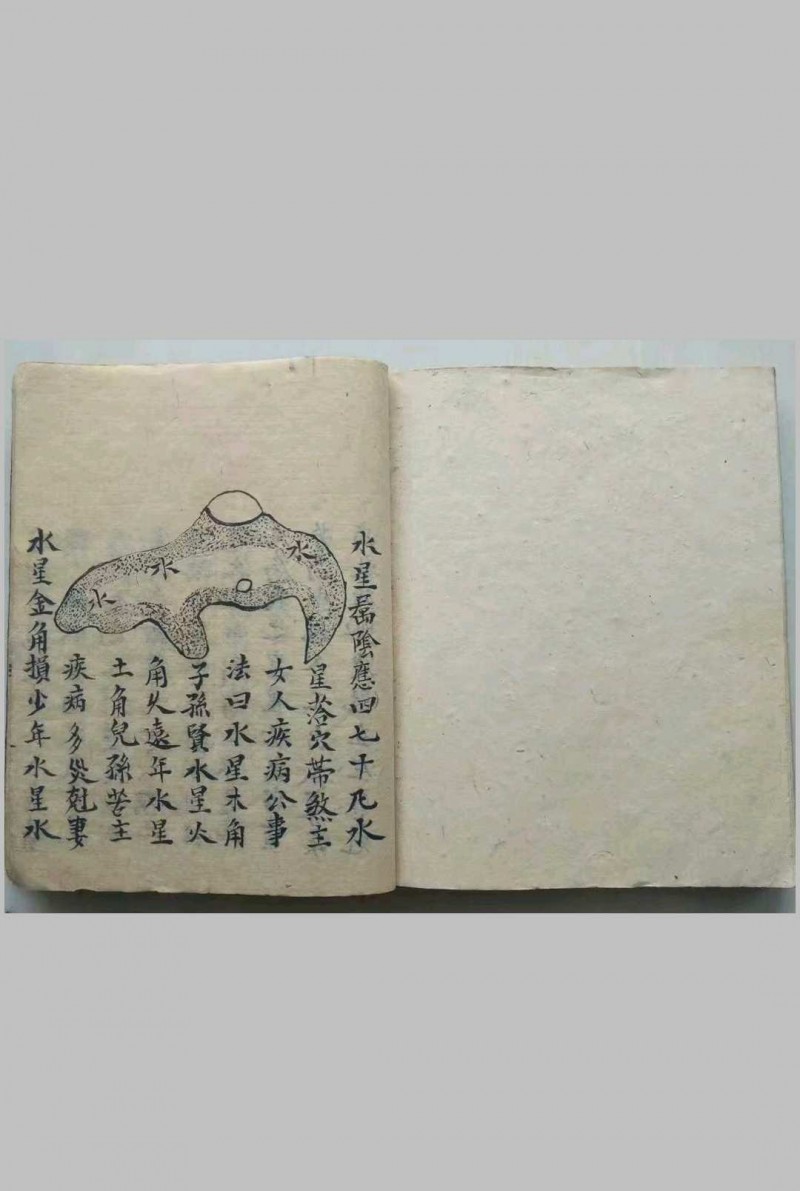 水星屬陰應四七十凡水
星落穴帶煞主
女人疾病公事
法曰水星木角
子孫賢水星火
角久遠年水星
土角兒孫苦主
疾病多災尅妻
水星金角損少年水星水
水
水
水